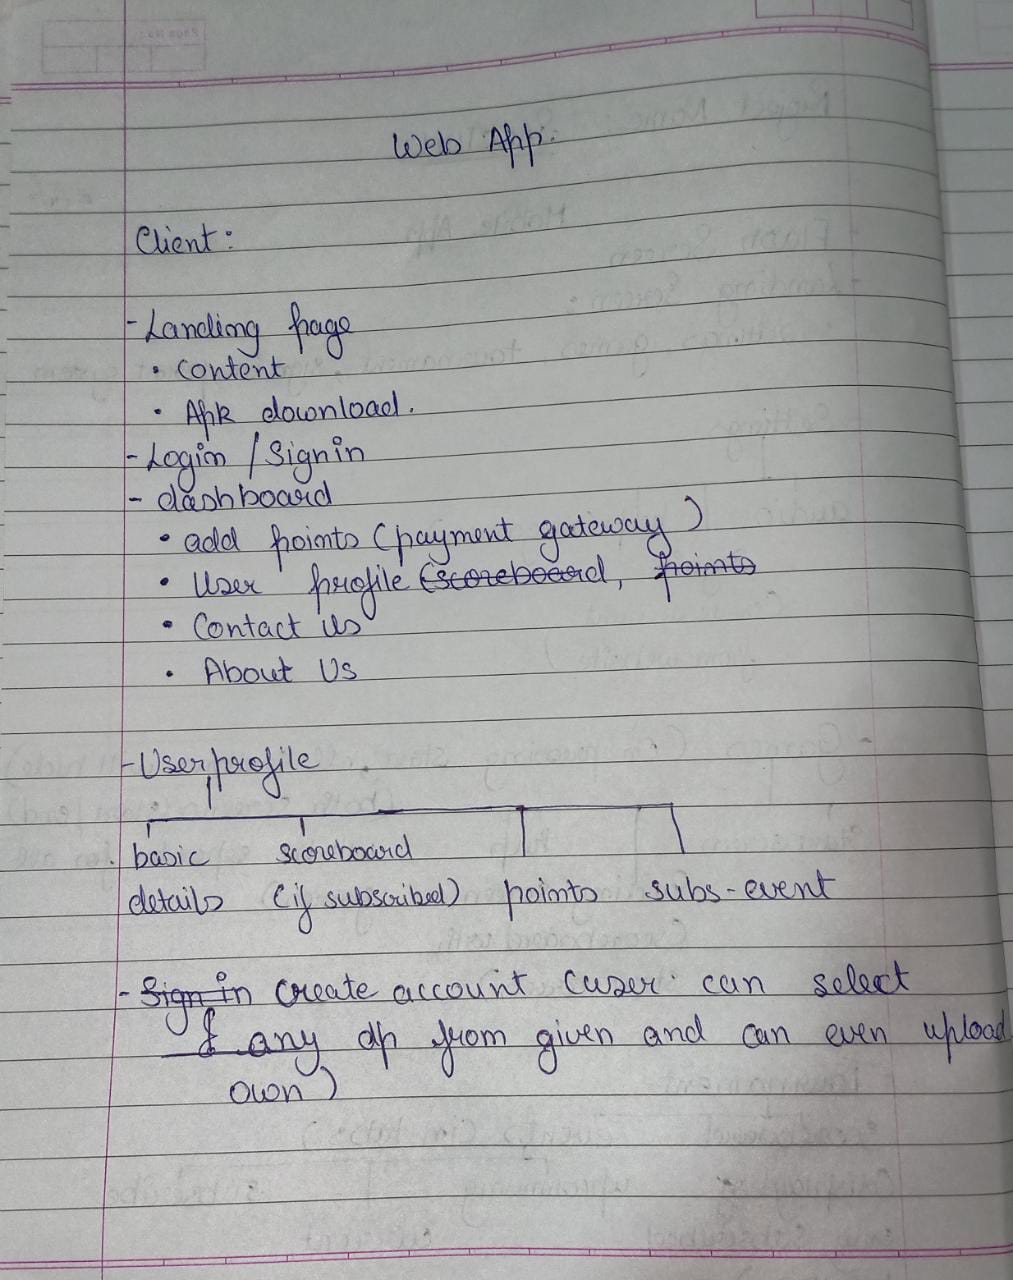 Web App.
Client:
- Landing page
• content
• Apk download.
- Login / Signin
- dashboard
• add points (payment gateway)
• User profile (scoreboard, points
• Contact Us
• About Us
- User profile
basic scoreboard
details (if subscribed) points subs-event
- Sign in create account (user can select
any dp from given and can even upload
own)